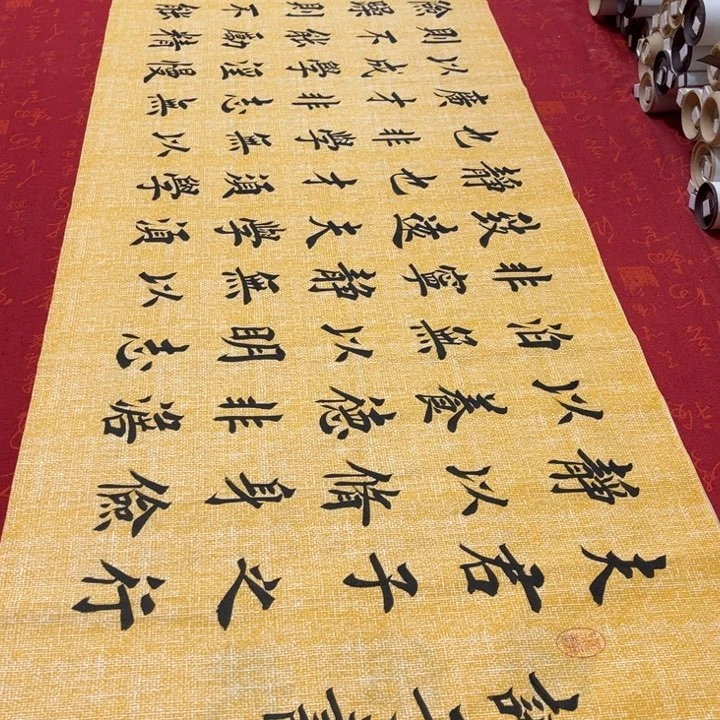 誡子書
夫君子之行
靜以脩身儉
以養德非澹
泊無以明志
非寧靜無以
致遠夫學須
靜也才須學
也非學無以
廣才非志無
以成學淫慢
則不能勵精
險躁則不能